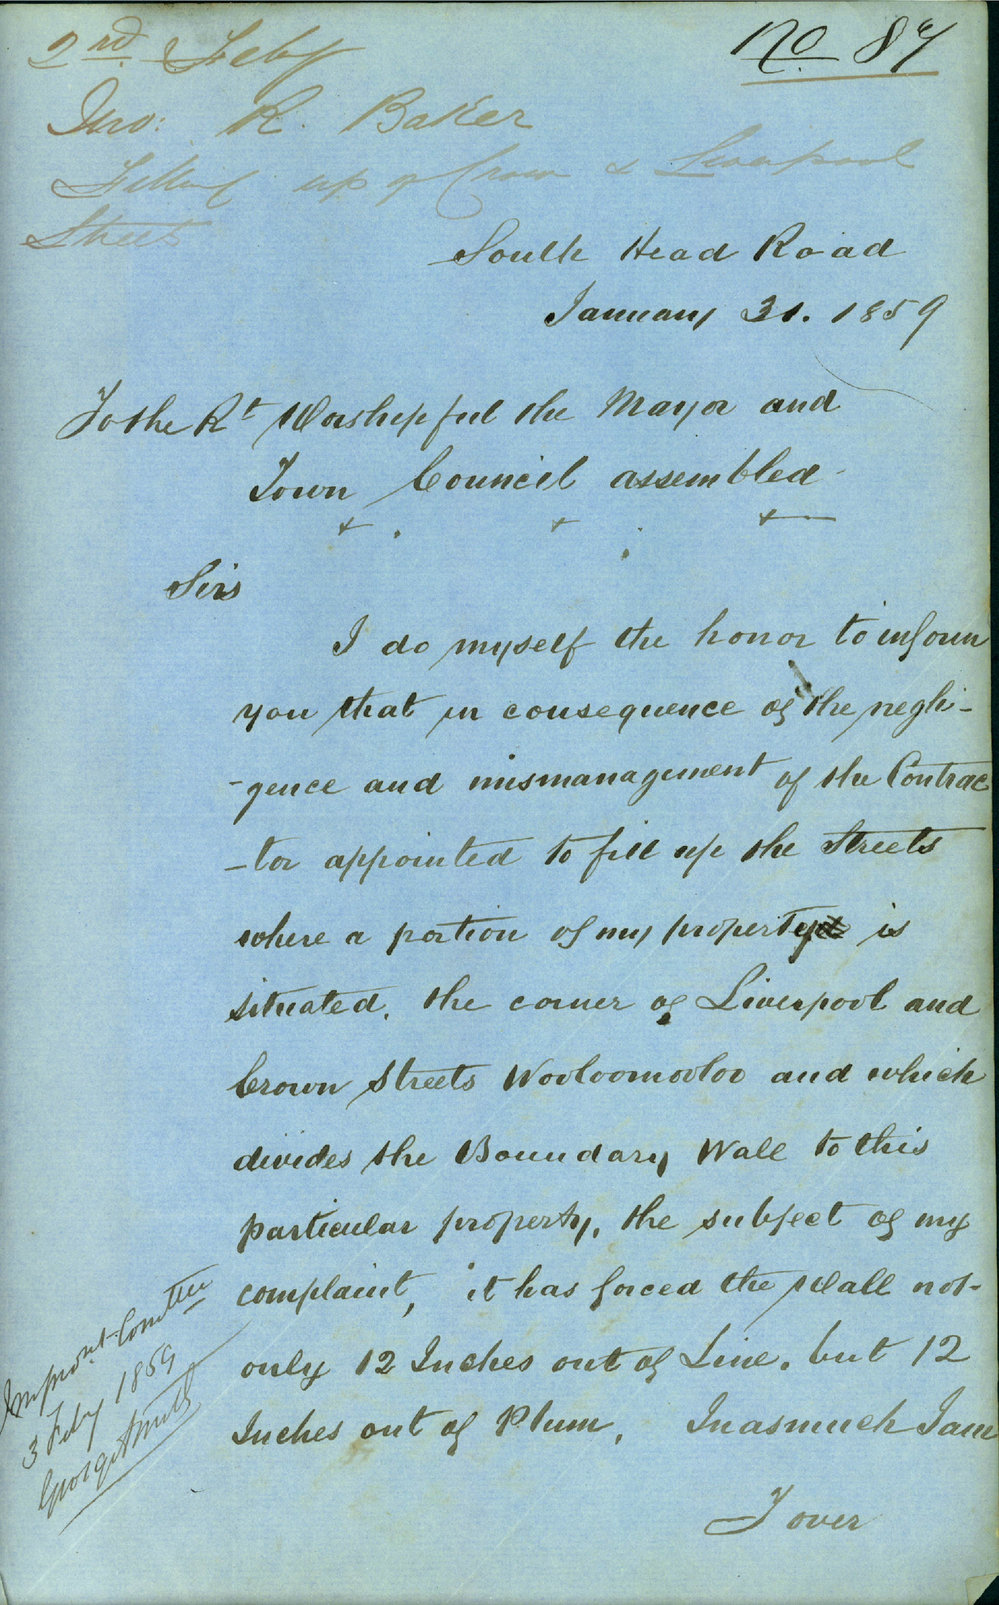 2nd Feby
No 87
Jno: R. Baker
Filling up of Crown & Liverpool
Street
South Head Road
January 31. 1859
To the Rt Worshipful the Mayor and
Town Council assembled
Sirs
I do myself the honor to inform
you that in consequence of the negli-
-gence and mismanagement of the Contrac
-tor appointed to fill up the Streets
where a portion of my property is
situated, the corner of Liverpool and
Crown Streets Wooloomooloo and which
divides the Boundary Wall to this
particular property, the subject of my
complaint, it has forced the Wall not-
only 12 Inches out of Line. but 12
Inches out of Plum, Inasmuch I am
T over
Improvt. Comttee
3 Feby 1859
George Smith